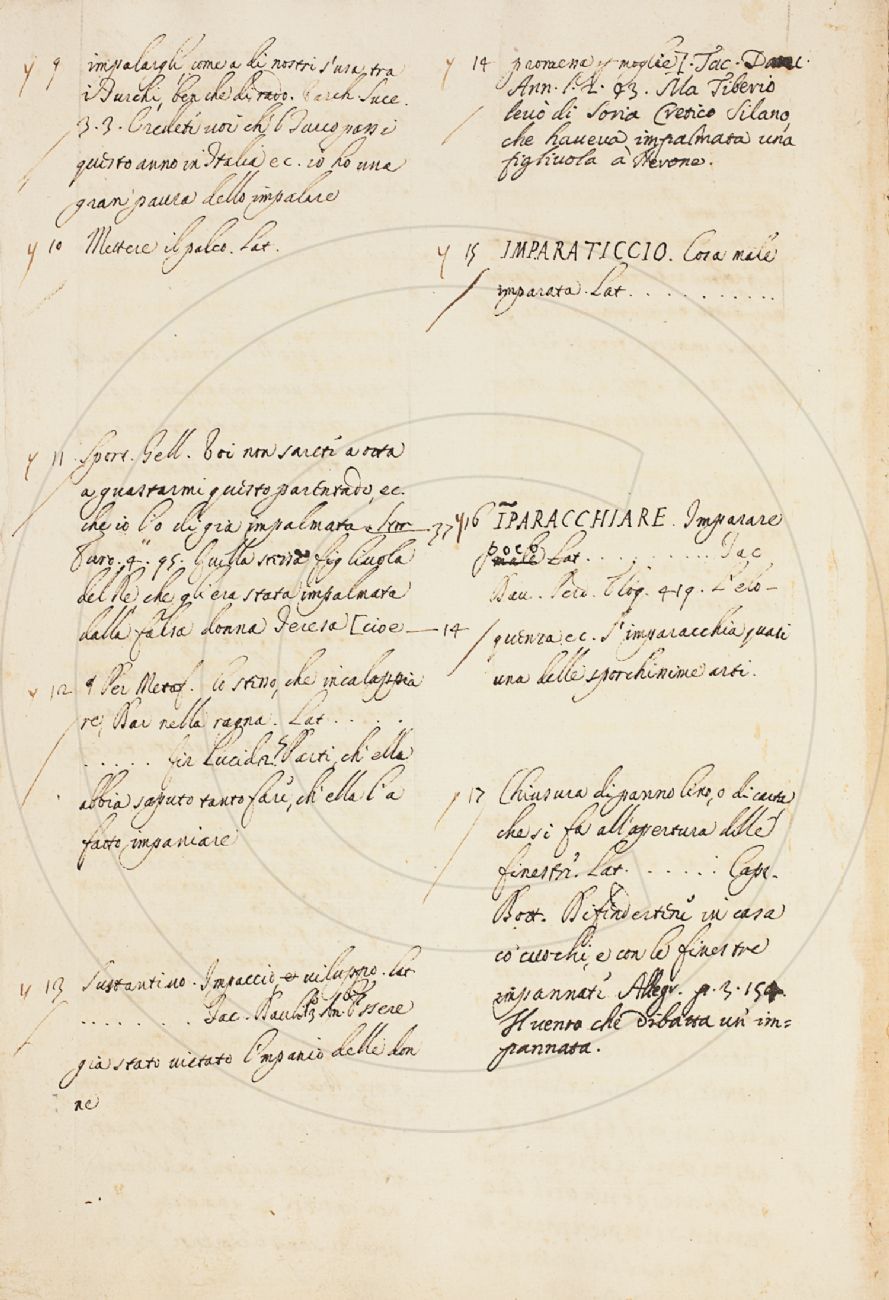 y 9 impalargli come a di nostri s'usa tra
i Turchi, ben che di rado. Varch. Suoc.
3. 3. Credete voi ch'l Turco passi
questo anno in Italia ec. io ho una
gran paura dello impalare
y 10 Mettere il palco. Lat.
y 11 Sport. Gell. Voi non sareti a otta
a guastarmi questo parentado, ec.
che io l'o di gia impalmata
Furo. 4. 95. Quella stessa figliuola
del Re che gli era stata impalmata
dalla falsa donna Teresa [cioe 14
y 12 Per Metaf. lo stesso, che incalappia
re, Dar nella ragna. Lat. . . . .
. . . . . Fir. Lucid. Parti, ch'ella
abbia saputo tanto fare, ch'ella l'a
fatto impaniare
y 13 Sustantivo. Impaccio, et viluppo. Lat
. . . . . . . . Tac. Dav. An. Essere
gia stato vietato l'impanio delle don
ne
y 14 promessa p moglie]. Tac. Dav.
Ann. l. 2. 43. Ma Tiberio
levò di Soria Cretico Silano,
che haveva impalmata una
figliuola à Nerone.
y 15 IMPARATICCIO. Cosa male
imparata. Lat. . . . . . . . . . .
37 y 16 ĨPARACCHIARE. Imparare
poco
male Lat. . . . . . . . . . Tac
Dav. Perd. Eloq. 419. L'elo-
quenza ec. S'imparacchia quasi
una delle sporchissime arti.
y 17 Chiusura di panno lino, o di carta,
che si fa all'apertura delle
finestre. Lat. . . . . . : Capr.
Bott. Difendertene in casa
co' cuochi, e con le finestre
impannate Allegr. p. 3. 154.
Il vento che dibatta un' im=
pannata.